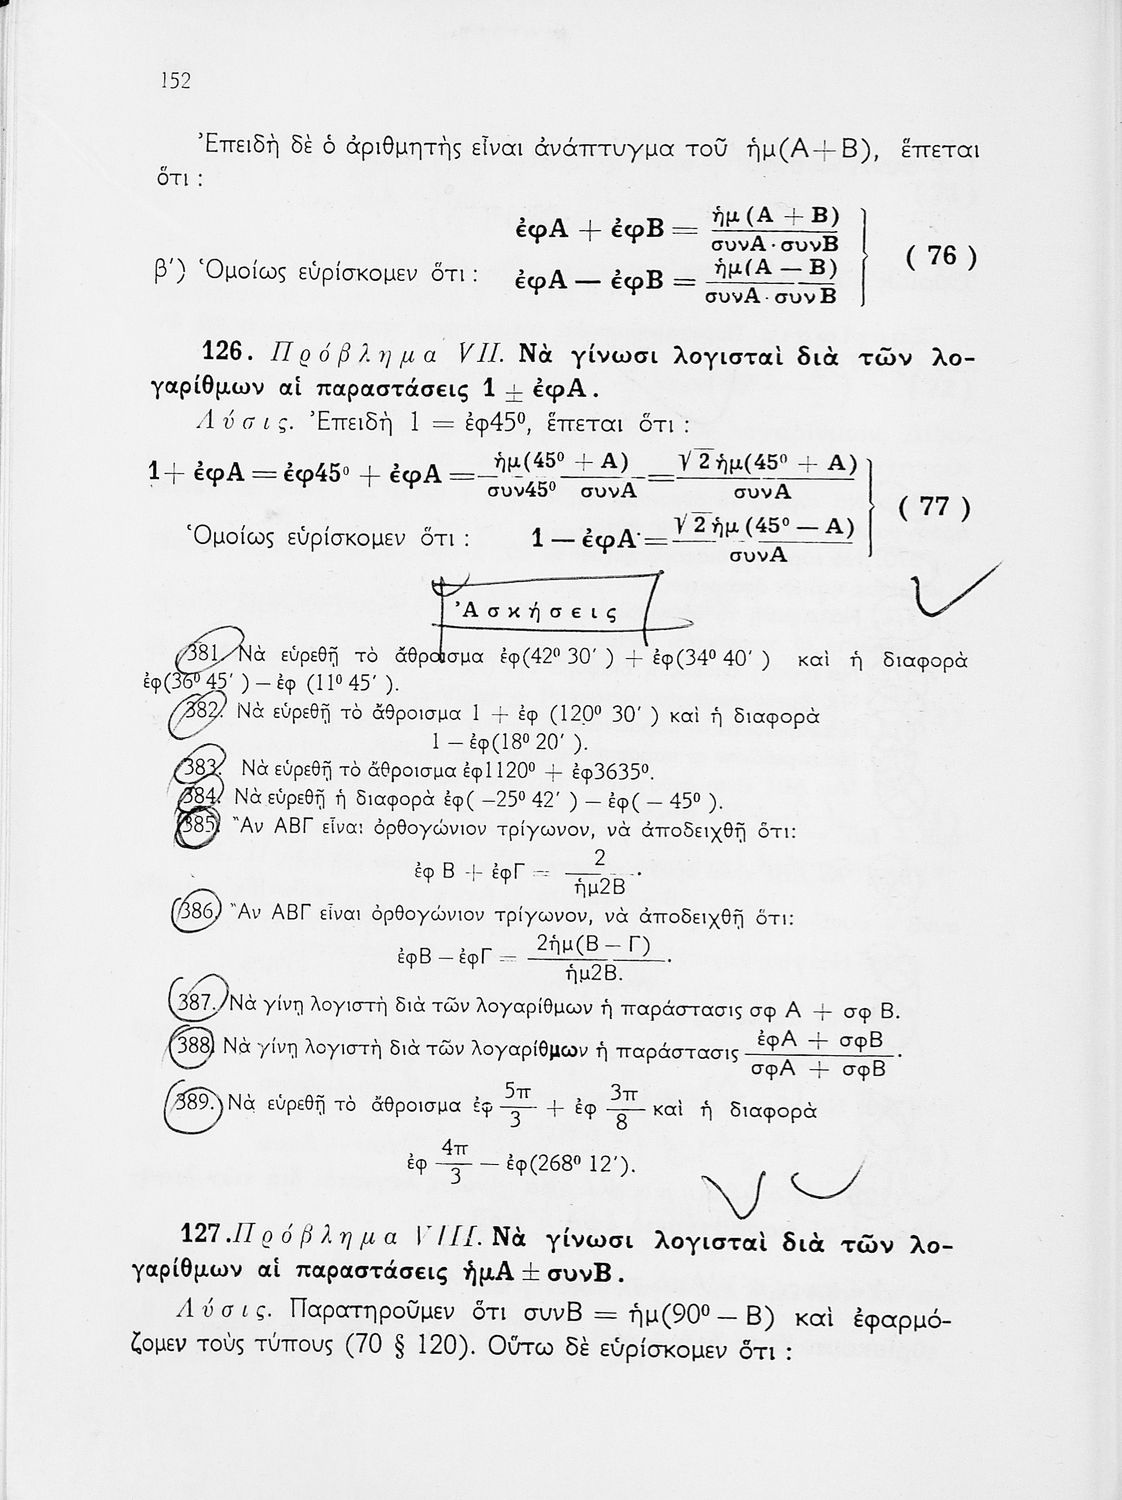 152
Ἐπειδὴ δὲ ὁ ἀριθμητὴς εἶναι ἀνάπτυγμα τοῦ ἡμ(Α+Β), ἕπεται
ὅτι :
ἐφΑ + ἐφΒ = ἡμ (Α + Β) / συνΑ · συνΒ
β′) Ὁμοίως εὑρίσκομεν ὅτι : ἐφΑ — ἐφΒ = ἡμ(Α — Β) / συνΑ · συνΒ ( 76 )
126. Πρόβλημα VII. Νὰ γίνωσι λογισταὶ διὰ τῶν λο-
γαρίθμων αἱ παραστάσεις 1 ± ἐφΑ.
Λύσις. Ἐπειδὴ 1 = ἐφ45⁰, ἕπεται ὅτι :
1+ ἐφΑ = ἐφ45⁰ + ἐφΑ = ἡμ(45⁰ + Α) / συν45⁰ συνΑ = √2 ἡμ(45⁰ + Α) / συνΑ
( 77 )
Ὁμοίως εὑρίσκομεν ὅτι : 1 — ἐφΑ = √2 ἡμ (45⁰ — Α) / συνΑ
Ἀσκήσεις
381. Νὰ εὑρεθῇ τὸ ἄθροισμα ἐφ(42⁰ 30′ ) + ἐφ(34⁰ 40′ ) καὶ ἡ διαφορὰ
ἐφ(36⁰ 45′ ) – ἐφ (11⁰ 45′ ).
382. Νὰ εὑρεθῇ τὸ ἄθροισμα 1 + ἐφ (120⁰ 30′ ) καὶ ἡ διαφορὰ
1 – ἐφ(18⁰ 20′ ).
383. Νὰ εὑρεθῇ τὸ ἄθροισμα ἐφ1120⁰ + ἐφ3635⁰.
384. Νὰ εὑρεθῇ ἡ διαφορὰ ἐφ( –25⁰ 42′ ) – ἐφ( – 45⁰ ).
385. Ἂν ΑΒΓ εἶναι ὀρθογώνιον τρίγωνον, νὰ ἀποδειχθῇ ὅτι:
ἐφ Β + ἐφΓ = 2 / ἡμ2Β .
386. Ἂν ΑΒΓ εἶναι ὀρθογώνιον τρίγωνον, νὰ ἀποδειχθῇ ὅτι:
ἐφΒ – ἐφΓ = 2ἡμ(Β – Γ) / ἡμ2Β. .
387. Νὰ γίνῃ λογιστὴ διὰ τῶν λογαρίθμων ἡ παράστασις σφ Α + σφ Β.
388. Νὰ γίνῃ λογιστὴ διὰ τῶν λογαρίθμων ἡ παράστασις ἐφΑ + σφΒ / σφΑ + σφΒ .
389. Νὰ εὑρεθῇ τὸ ἄθροισμα ἐφ 5π/3 + ἐφ 3π/8 καὶ ἡ διαφορὰ
ἐφ 4π/3 – ἐφ(268⁰ 12′).
127. Πρόβλημα VIII. Νὰ γίνωσι λογισταὶ διὰ τῶν λο-
γαρίθμων αἱ παραστάσεις ἡμΑ ± συνΒ.
Λύσις. Παρατηροῦμεν ὅτι συνΒ = ἡμ(90⁰ – Β) καὶ ἐφαρμό-
ζομεν τοὺς τύπους (70 § 120). Οὕτω δὲ εὑρίσκομεν ὅτι :